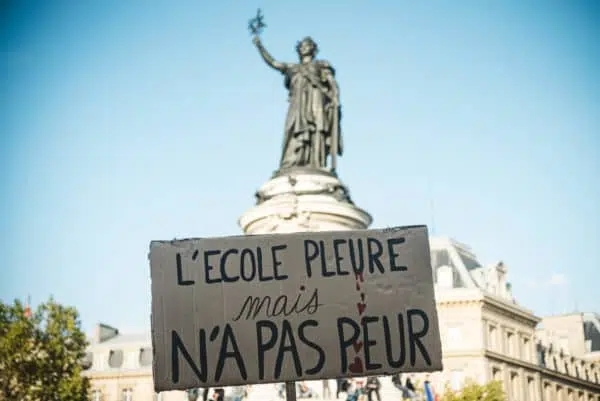 L'ECOLE PLEURE
mais
N'A PAS PEUR